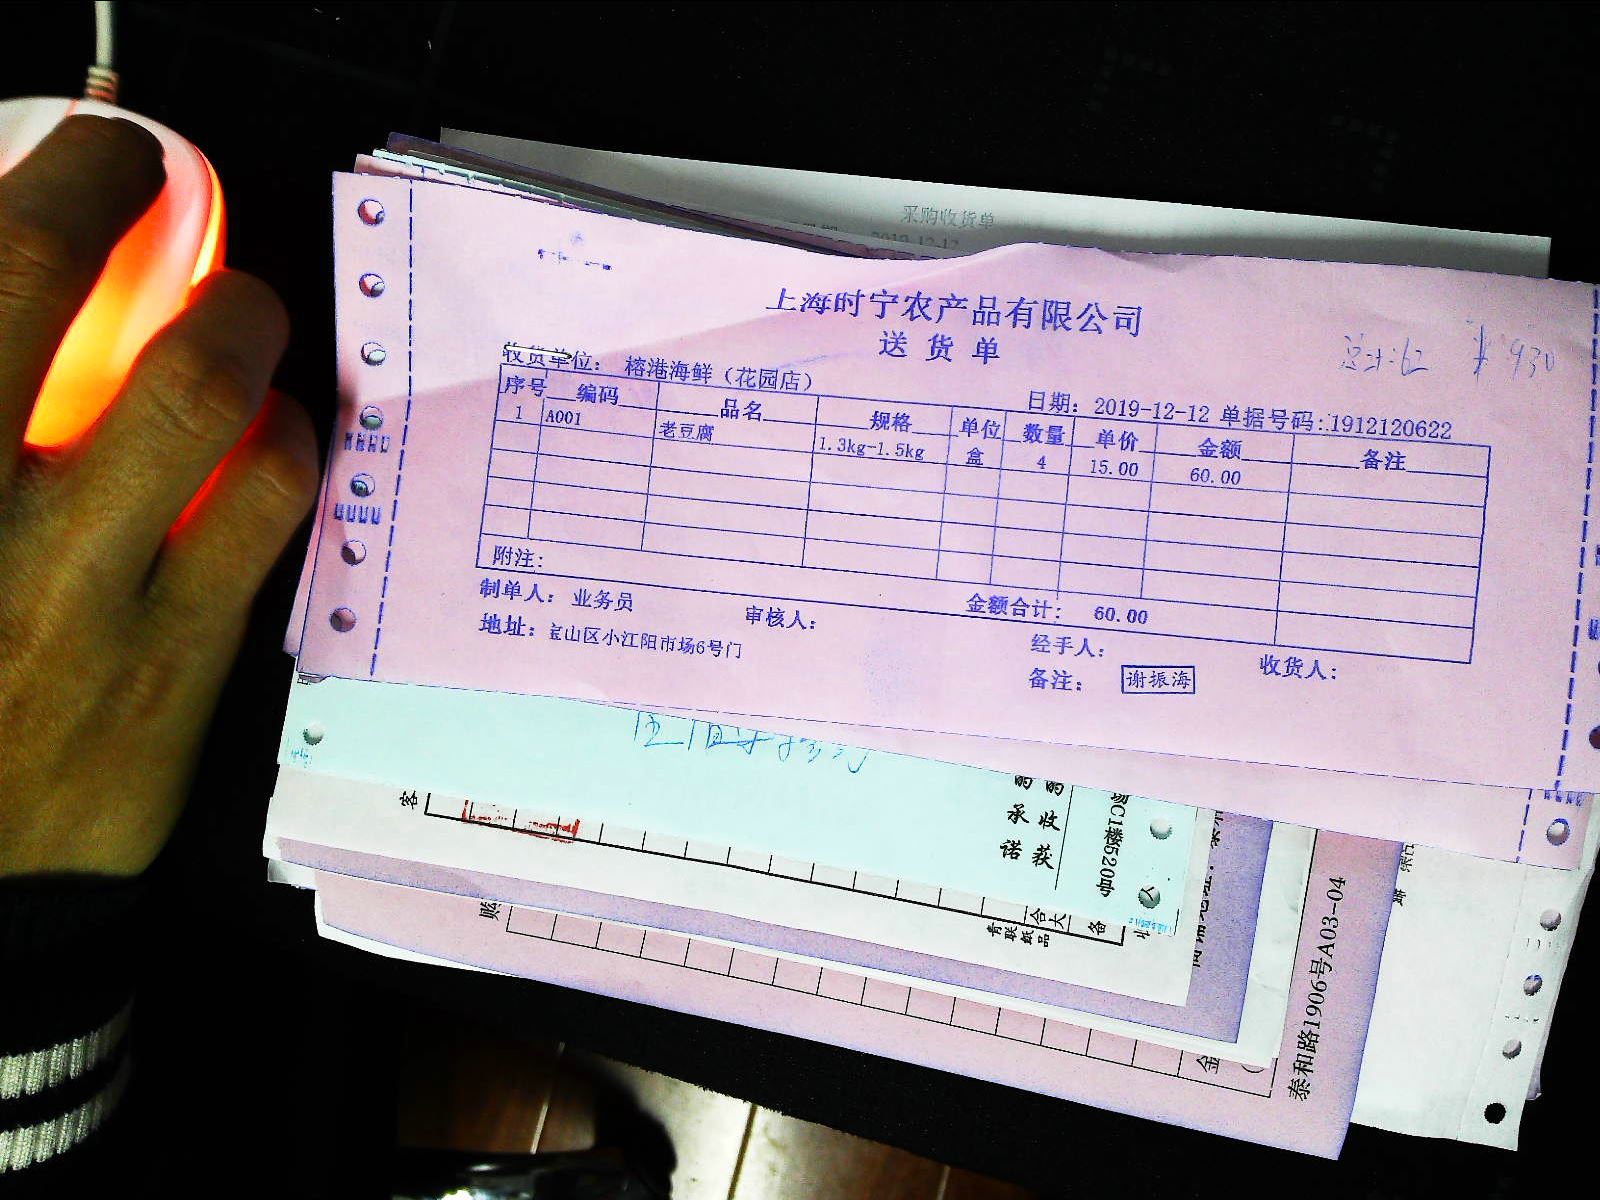 采购收货单
2019-12-12
上海时宁农产品有限公司
送货单
收货单位： 榕港海鲜（花园店）
日期： 2019-12-12 单据号码：1912120622
序号 编码 品名 规格 单位 数量 单价 金额 备注
1 A001 老豆腐 1.3kg-1.5kg 盒 4 15.00 60.00
附注：
金额合计： 60.00
制单人： 业务员 审核人： 经手人： 收货人：
地址：宝山区小江阳市场6号门
备注： 谢振海
承诺
收获
场C1楼520号
客
备
青联纸品
金
泰和路1906号A03-04